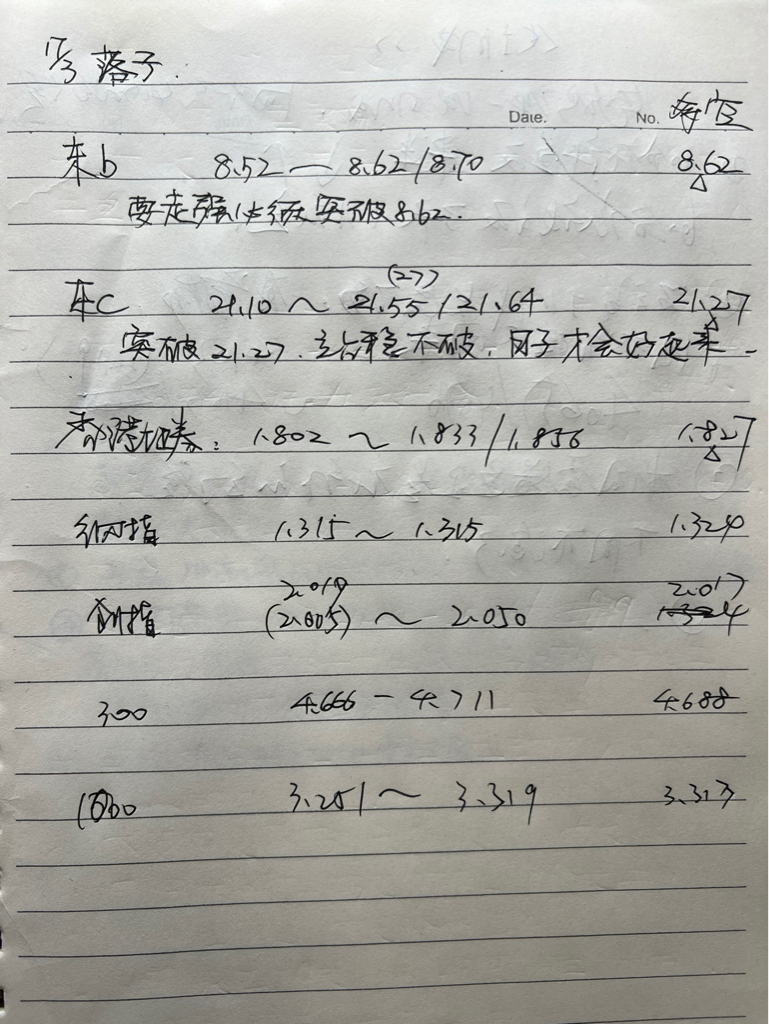 17/3 落子.
Date. No.
东b 8.52 — 8.62/8.70 8.62
要走强必须突破8.62.
(27)
东C 21.10 ~ 21.55/21.64 21.27
突破21.27.并站稳不破.日子才会好起来.
香港证券: 1.802 ~ 1.833/1.856 1.827
纳指 1.315 ~ 1.315 1.324
2.019 2.017
创指 (2.005) ~ 2.050
300 4.666 — 4.711 4.688
1000 3.251 ~ 3.319 3.313